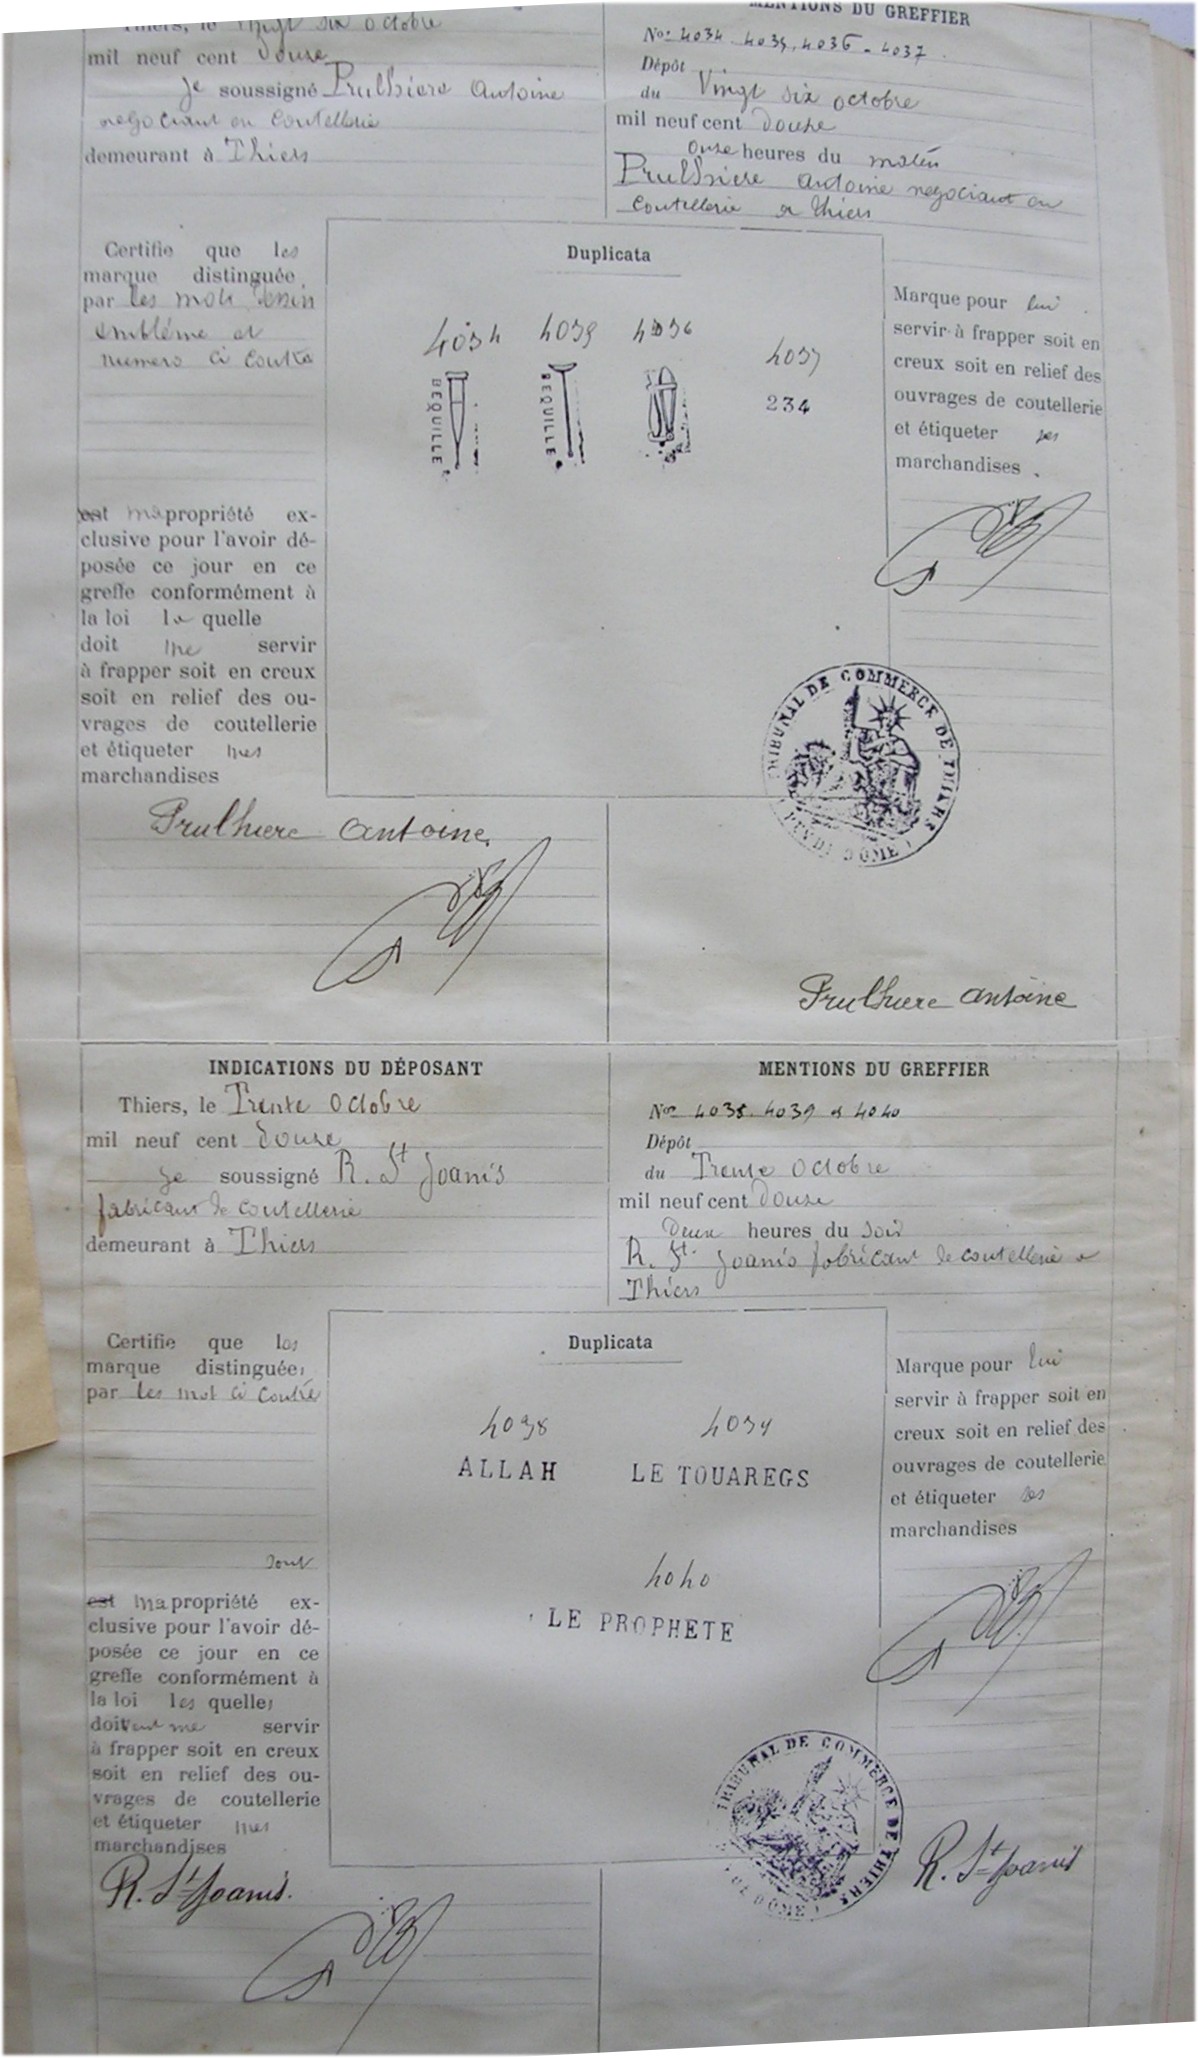 Thiers, le Vingt six octobre
mil neuf cent douze
Je soussigné Prulhiere Antoine
negociant en Coutellerie
demeurant à Thiers
MENTIONS DU GREFFIER
Nos 4034. 4035. 4036 - 4037.
Dépôt
du Vingt six octobre
mil neuf cent douze
onze heures du matin
Prulhiere Antoine negociant en
Coutellerie a Thiers
Certifie que les
marque distinguées
par les mots dessin
emblème et
numero ci contre
est ma propriété ex-
clusive pour l'avoir dé-
posée ce jour en ce
greffe conformément à
la loi la quelle
doit me servir
à frapper soit en creux
soit en relief des ou-
vrages de coutellerie
et étiqueter mes
marchandises
Prulhiere Antoine
Duplicata
4034 4035 4036
4037
BEQUILLE BEQUILLE
234
Marque pour lui
servir à frapper soit en
creux soit en relief des
ouvrages de coutellerie
et étiqueter ses
marchandises.
TRIBUNAL DE COMMERCE DE THIERS
PUY DE DOME
Prulhiere Antoine
INDICATIONS DU DÉPOSANT
Thiers, le Trente Octobre
mil neuf cent douze
Je soussigné R. St Joanis
fabricant de coutellerie
demeurant à Thiers
MENTIONS DU GREFFIER
Nos 4038. 4039 et 4040
Dépôt
du Trente Octobre
mil neuf cent douze
Deux heures du soir
R. St. Joanis fabricant de coutellerie a
Thiers
Certifie que les
marque distinguées
par les mot ci contre
sont
est ma propriété ex-
clusive pour l'avoir dé-
posée ce jour en ce
greffe conformément à
la loi les quelles
doivent me servir
à frapper soit en creux
soit en relief des ou-
vrages de coutellerie
et étiqueter mes
marchandises
R. St Joanis.
Duplicata
4038 4039
ALLAH LE TOUAREGS
4040
LE PROPHETE
Marque pour lui
servir à frapper soit en
creux soit en relief des
ouvrages de coutellerie
et étiqueter ses
marchandises
TRIBUNAL DE COMMERCE DE THIERS
PUY DE DOME
R. St Joanis